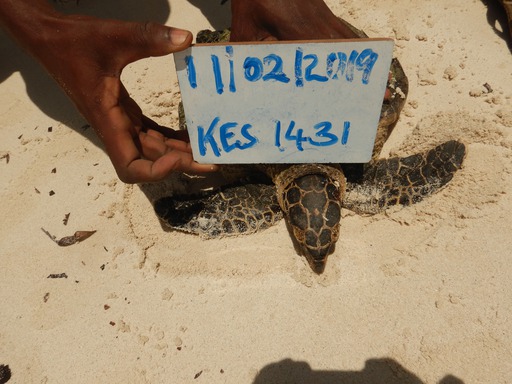 11/02/2019
KES 1431